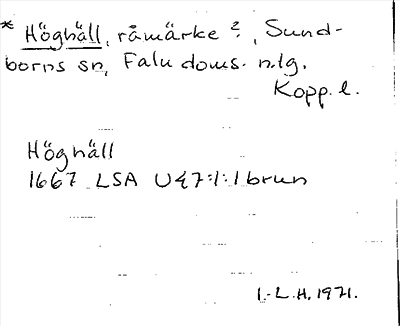 * Höghäll, råmärke?, Sund-
borns sn, Falu doms. nlg.
Kopp. l.
Höghäll
1667 LSA U47:1:1 brun
I.-L.H. 1971.